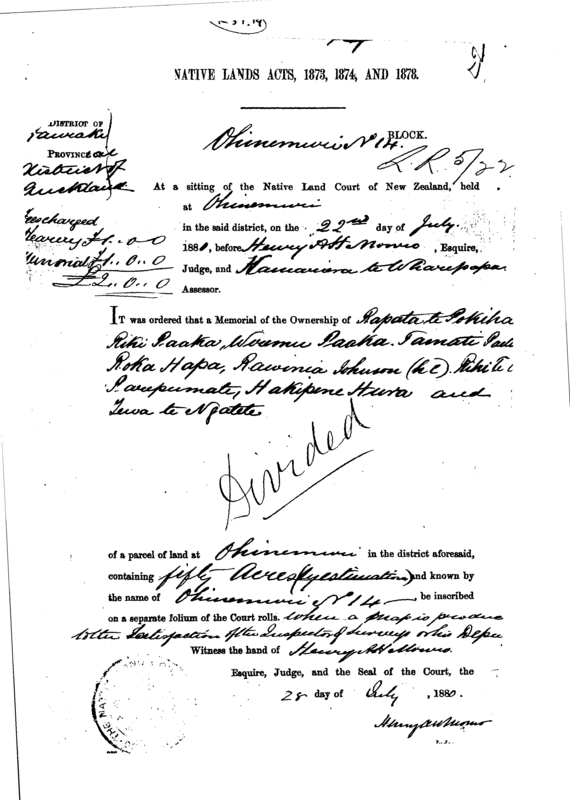 NATIVE LANDS ACTS, 1873, 1874, AND 1878.
DISTRICT OF
Hauraki
PROVINCE
District of
Auckland
Ohinemuri No 14. BLOCK.
L.R. 5/22
At a sitting of the Native Land Court of New Zealand, held
at Ohinemuri
in the said district, on the 22nd day of July
1880, before Henry A H Monro, Esquire,
Judge, and Hamiora te Wharepapa
Assessor.
Fees charged
Hearing £1..0..0
Memorial £1..0..0
£2..0..0
IT was ordered that a Memorial of the Ownership of Rapata te Pokiha
Riki Paaka, Wiremu Paaka. Tamati
Roka Hapa, Rawinia Johnson (h.c)
Hakipene Hura and
Tewa te Ngatete
Divided
of a parcel of land at Ohinemuri in the district aforesaid,
containing fifty Acres (by estimation) and known by
the name of Ohinemuri No 14 be inscribed
on a separate folium of the Court rolls. When a map is produce
to the Satisfaction of the Inspector of Surveys or his Depu
Witness the hand of Henry A H Monro.
Esquire, Judge, and the Seal of the Court, the
28 day of July, 1880.
Henry A H Monro